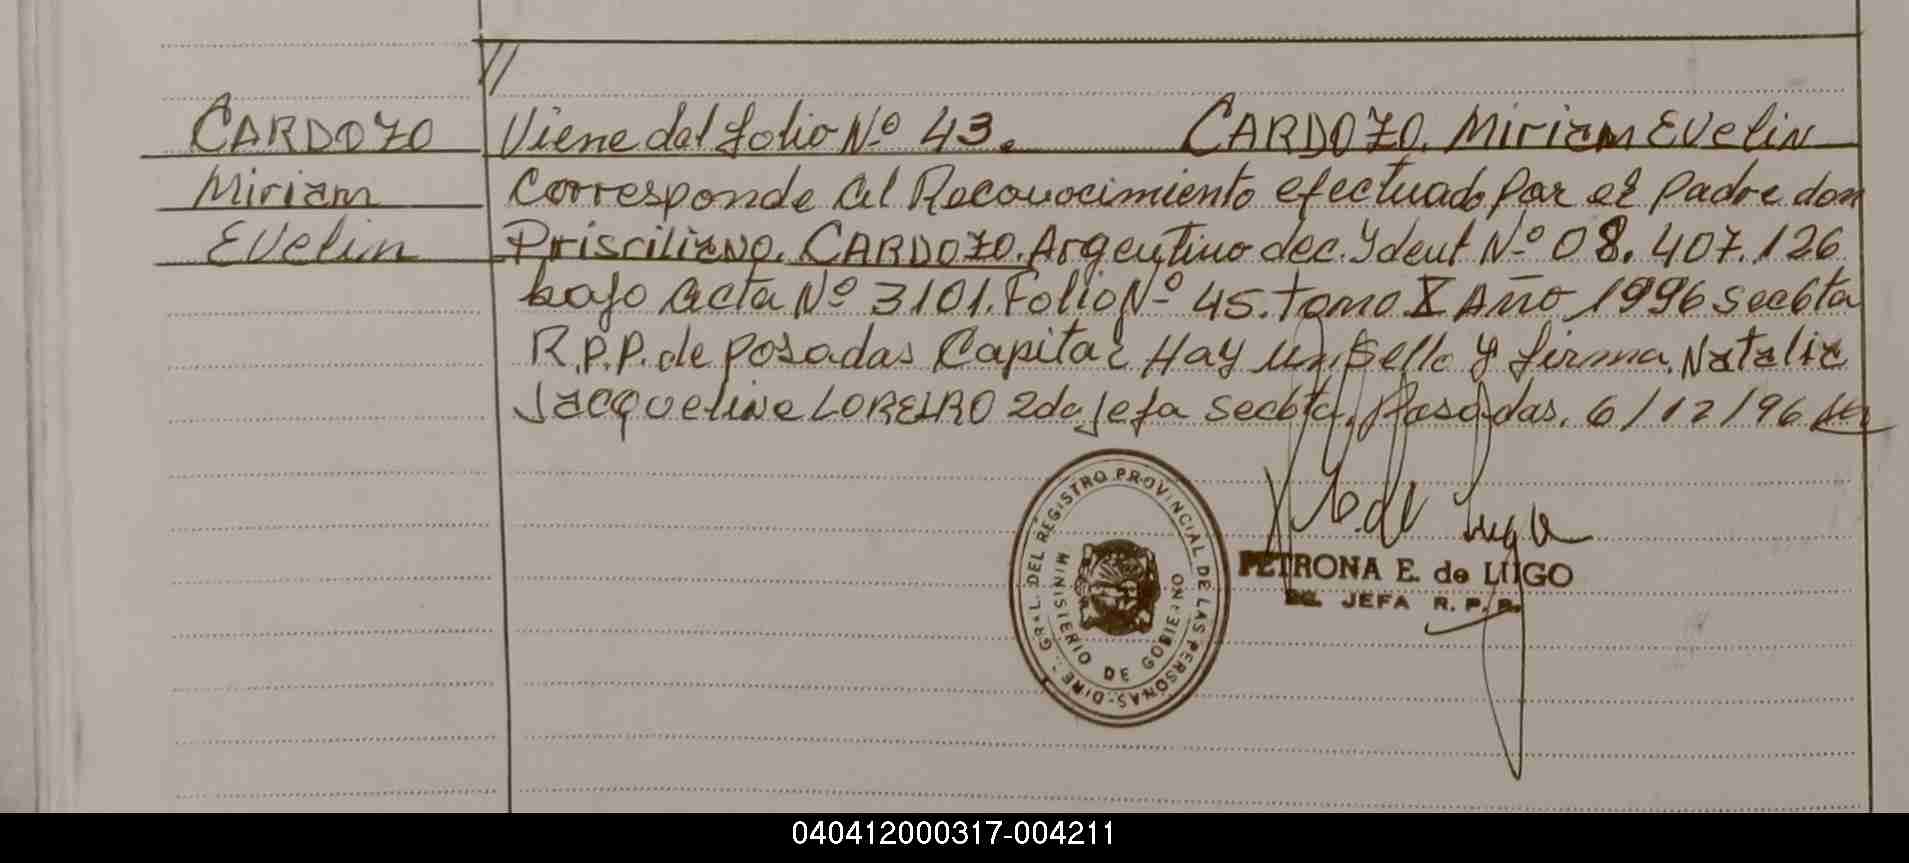 //
CARDOZO Viene del folio Nº 43. CARDOZO. Miriam Evelin
Miriam Corresponde al Reconocimiento efectuado por el padre don
Evelin Prisciliano. CARDOZO. Argentino dec. Ydent Nº 08.407.126
bajo acta Nº 3101. Folio Nº 45. tomo X Año 1996 Secbta
R.P.P. de posadas Capital Hay un sello y firma. Natalia
Jacqueline LOREIRO 2da jefa Secbta. Posadas. 6/12/96
DIRE. GRAL. DEL REGISTRO PROVINCIAL DE LAS PERSONAS
MINISTERIO DE GOBIERNO
E. de Lugo
PETRONA E. de LUGO
JEFA R. P. P.
040412000317-004211